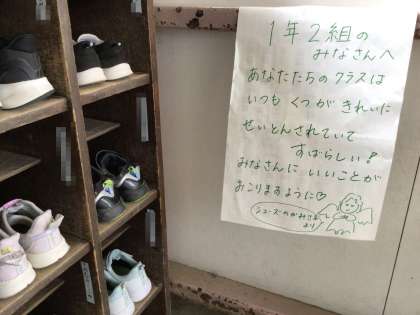 1年2組の
みなさんへ
あなたたちのクラスは
いつも くつが きれいに
せいとんされていて
すばらしい!
みなさんに いいことが
おこりますように♡
シューズのかみさま
より